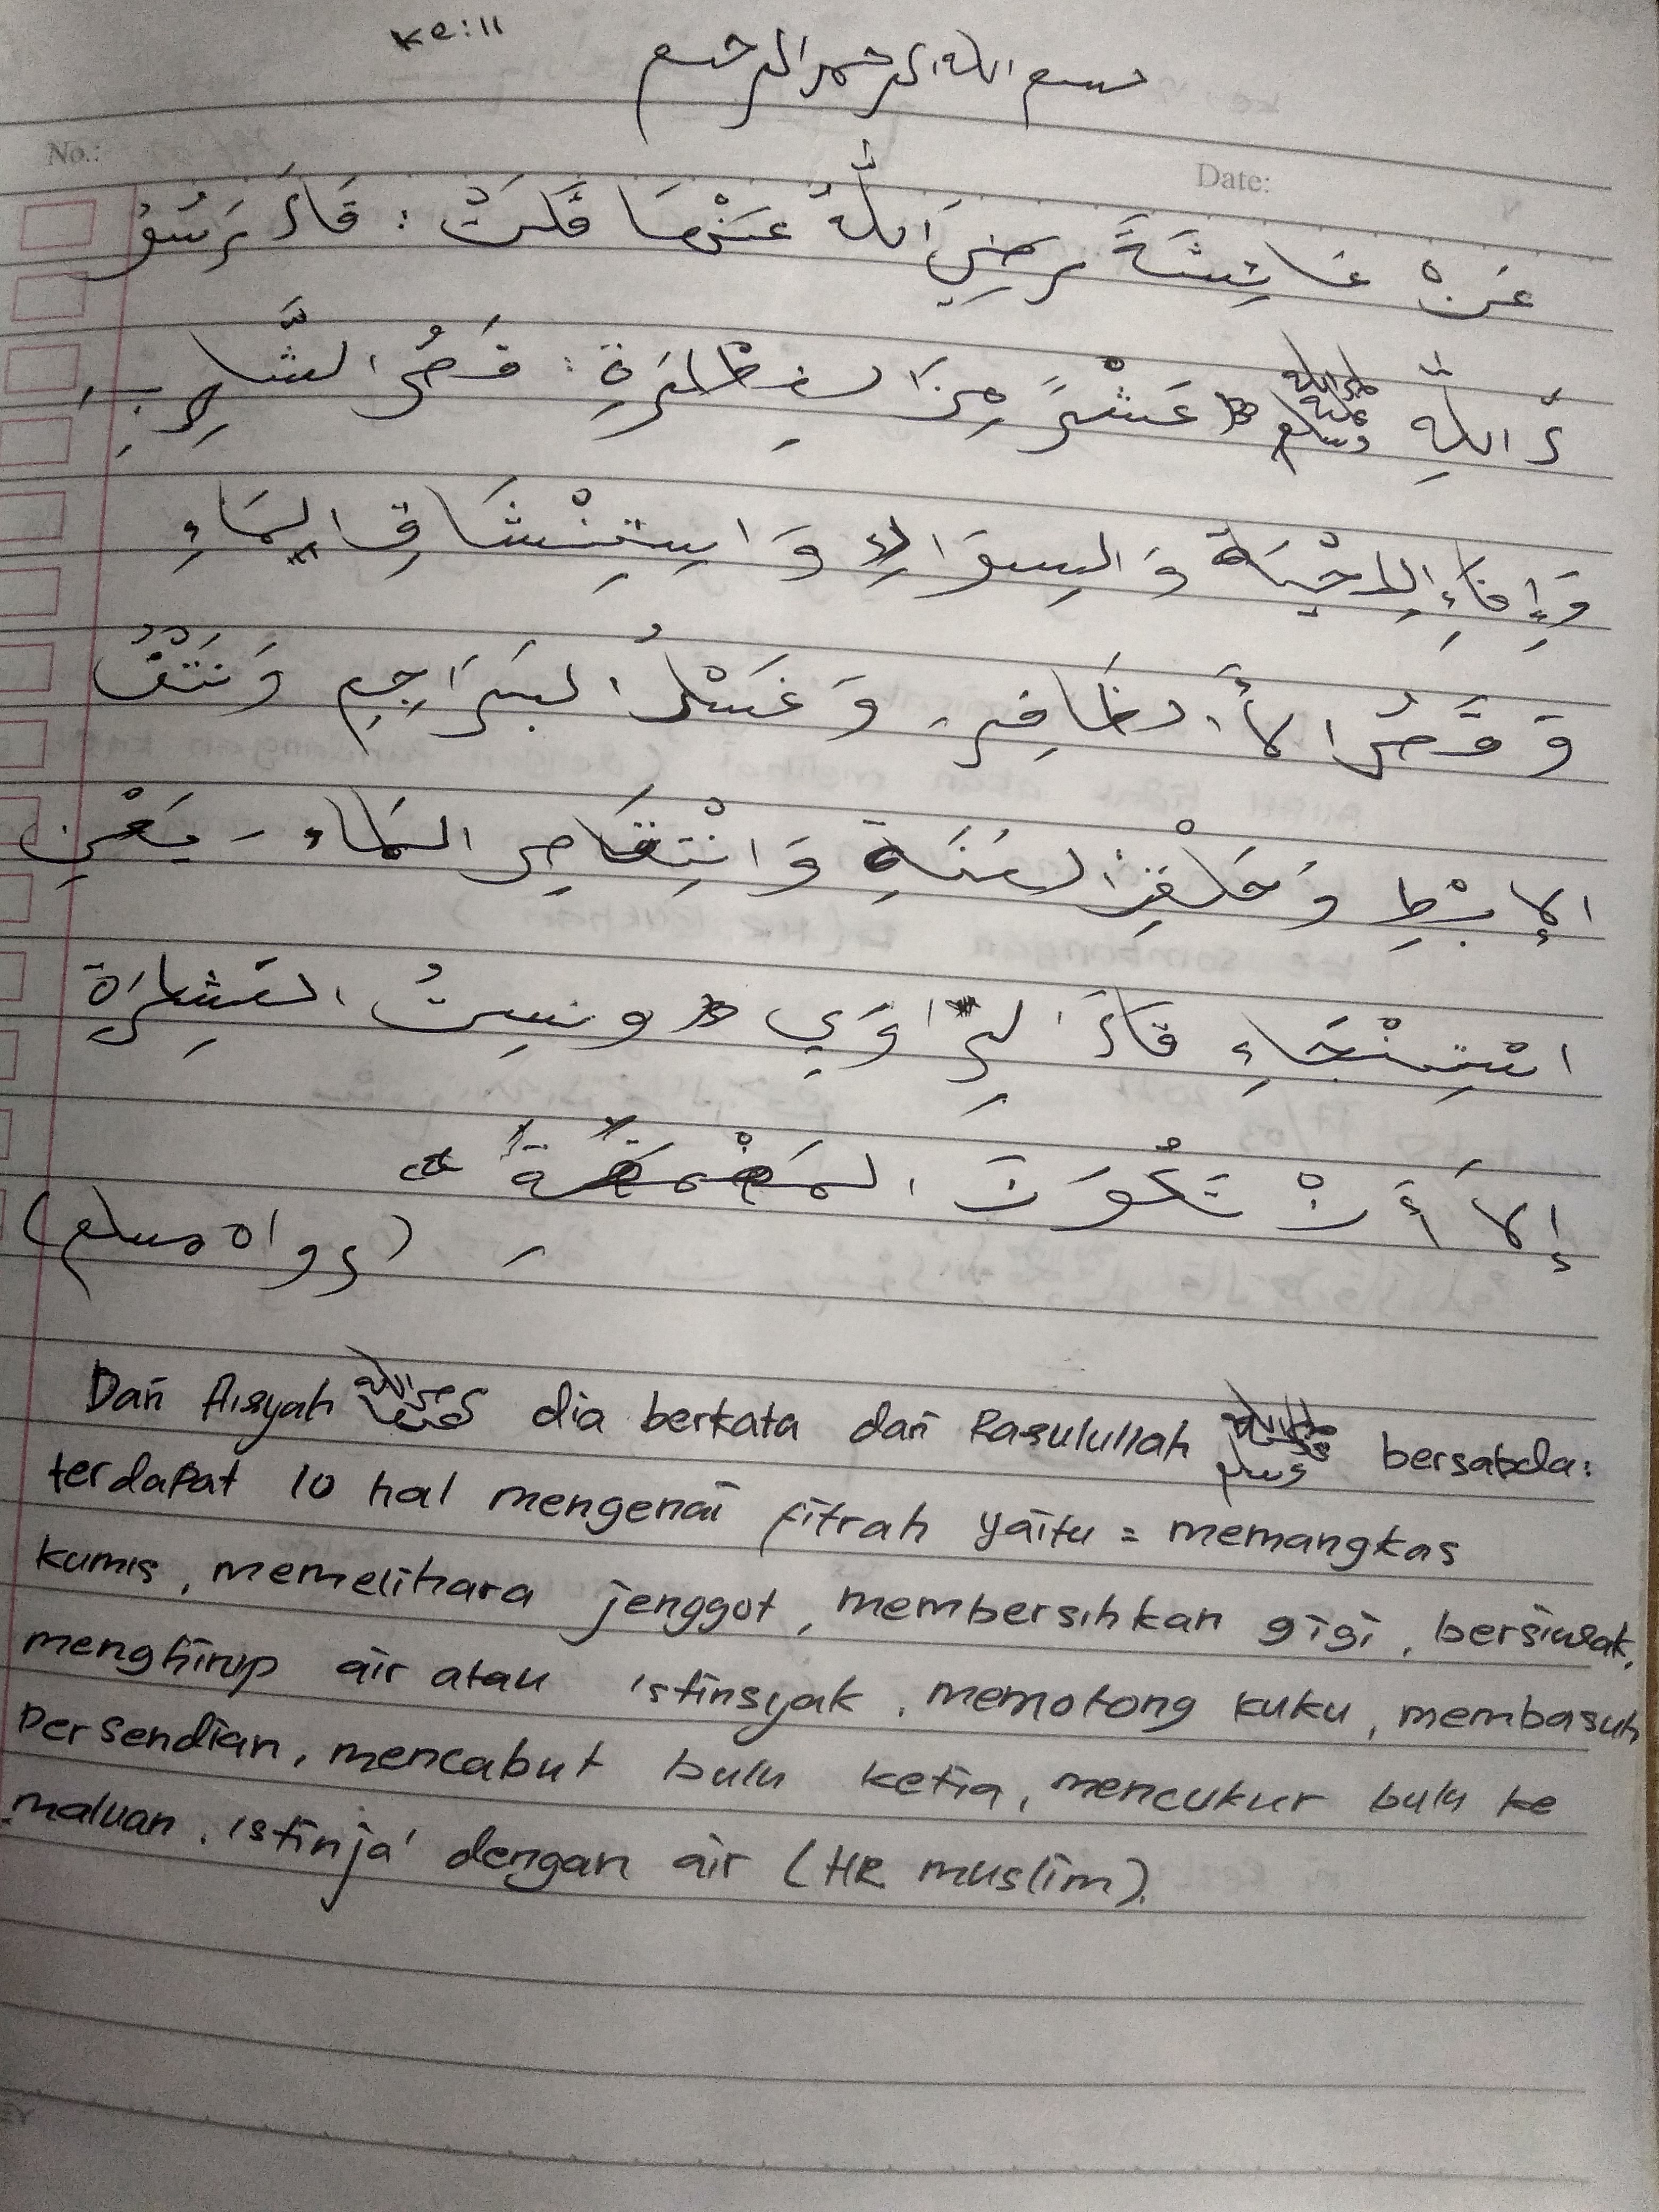 ke:11
بسم الله الرحمن الرحيم
No.:
Date:
عَنْ عَائِشَةَ رَضِيَ اللّٰهُ عَنْهَا قَلَتْ : قَالَ رَسُوْ
لَ اللّٰهِ صلى الله عليه وسلم عَشْرٌ مِنَ الفِطْرَةِ : قَصُّ الشَّارِبِ،
وَإِفَاءِ اللِحْيَةِ وَالسِوَاكِ وَاسِتِنْشَاقِ المَاءِ
وَقَصُّ الأَظَافِرِ، وَغَسْلُ البَرَاجِمِ وَنَتْفُ
الإِبْطِ وَحَلْقِ العَنَةِ وَانْتِقَاصِ المَاء - يَعْنِ
اسْتِنْجَاءِ قَالَ الرَّاوِي ونسِيتُ العَشِرَةِ
إِلاَّ أَنْ تَكُوَنَ المَضْمَضَةَ
(رواه مسلم)
Dari Aisyah رضي الله عنها dia berkata dari Rasulullah صلى الله عليه وسلم bersabda:
terdapat 10 hal mengenai fitrah yaitu = memangkas
kumis, memelihara jenggot, membersihkan gigi, bersiwak,
menghirup air atau istinsyak, memotong kuku, membasuh
persendian, mencabut bulu ketia, mencukur bulu ke
maluan, istinja' dengan air (HR muslim).